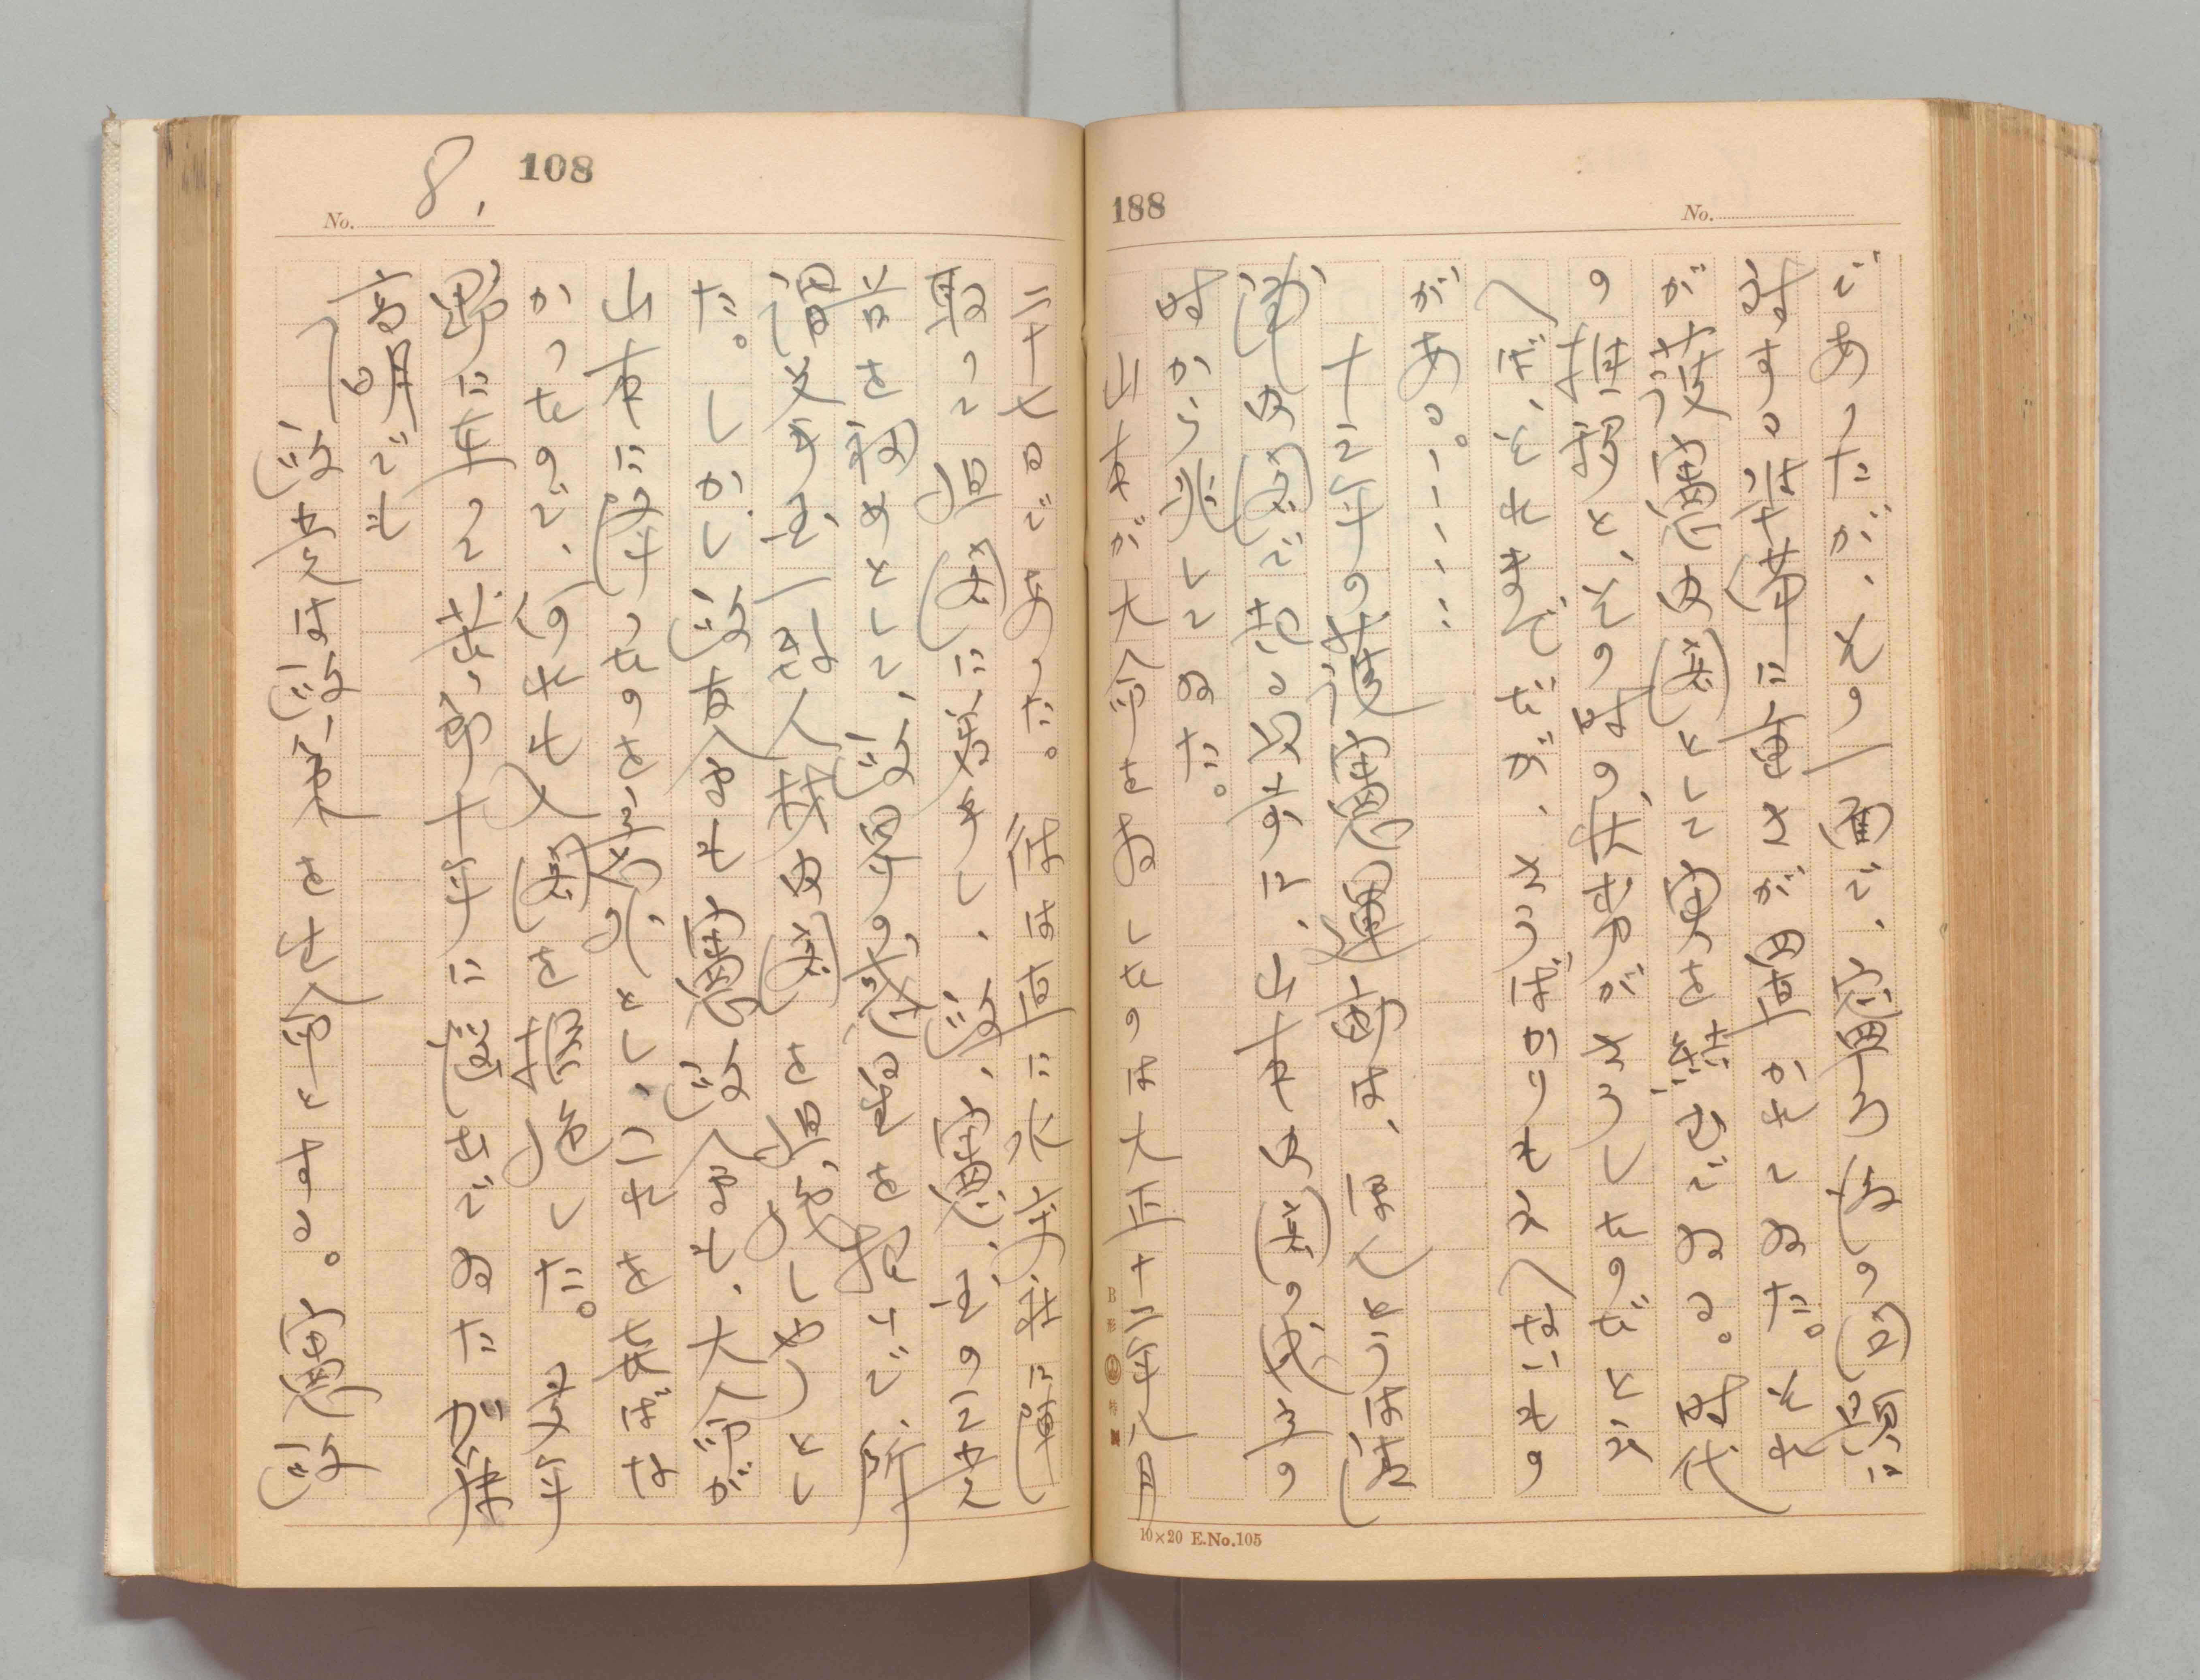 188
No.
であつたが、その一面で、
対する
重さが
かれてゐた。それ
が護憲内閣として実を結んでゐる。時代
の推移と、その時の大勢がさうしたのだと云
へば、それまでだが、さうばかりも云へないもの
がある。……
十三年の護憲運動は、ほんとうは清
浦内閣で起る以前に、山本内閣の成立の
時から兆してゐた。
山本が大命を拝したのは大正十二年八月
10×20 E.No.105
108
No. 8,
二十七日であつた。彼は直に水交社に陣
取つて組閣に着手し、政、憲、革の三党
首を初めとして、政界の
を招いで、所
謂挙国一致人材内閣を組織しやうとし
た。しかし政友会も憲政会も、大命が
山本に降つたのを意外とし、これを喜ばな
かつたので、何れも入閣を拒絶した。
野に在つて
十年に
でゐた加藤
高明でも
政党は政策を生命とする。憲政